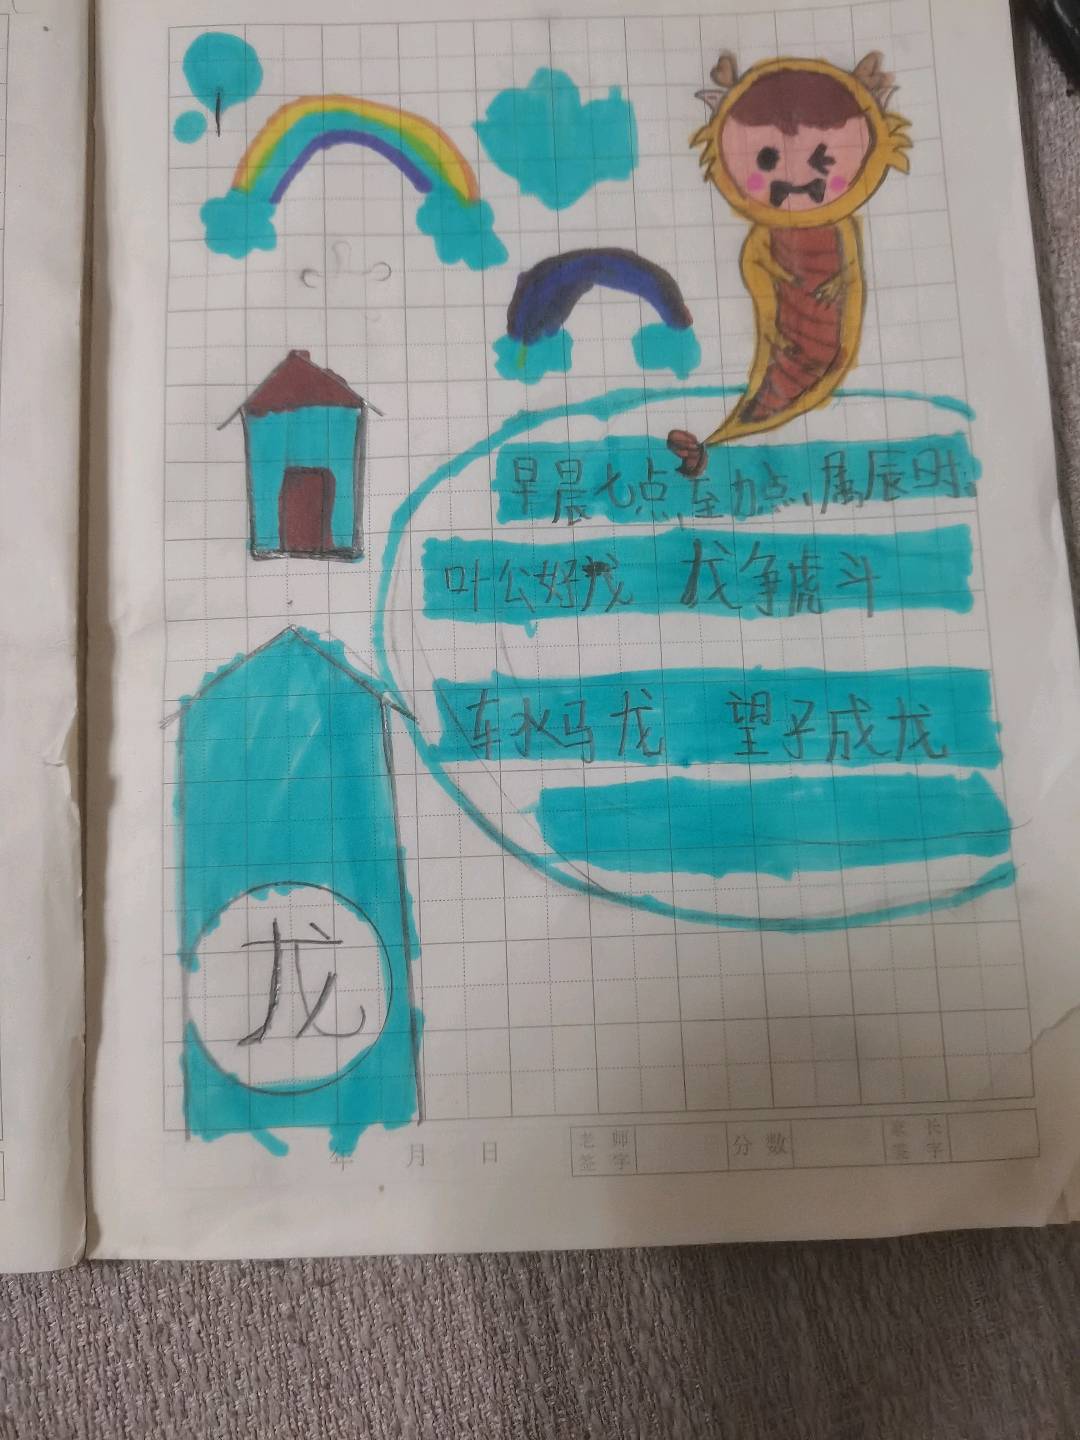 早晨七点至力点、属辰时.
叶公好龙 龙争虎斗
车水马龙 望子成龙
龙
年 月 日 老师签字 分数 家长签字